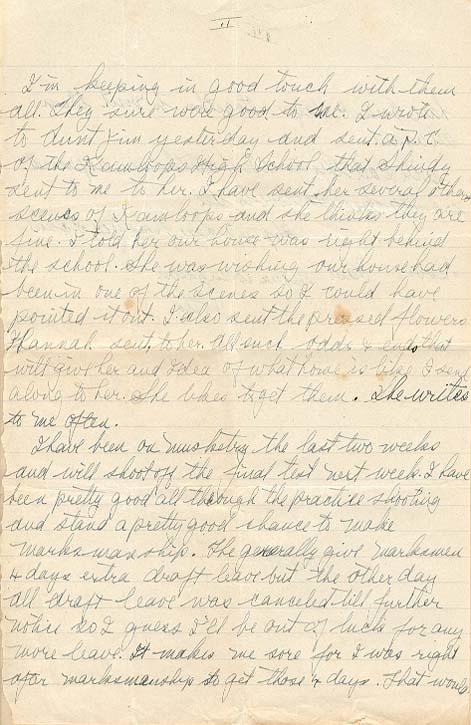 II
I'm keeping in good touch with them
all. They sure were good to me. I wrote
to Aunt Jim yesterday and sent a p.c.
of the Kamloops High School that Shindy
sent to me to her. I have sent her several other
scenes of Kamloops and she thinks they are
fine. I told her our house was right behind
the school. She was wishing our house had
been in one of the scenes so I could have
pointed it out. I also sent the pressed flowers
Hannah sent, to her. All such odds & ends that
will give her and idea of what home is like I send
along to her. She likes to get them. She writes
to me often.
I have been on musketry the last two weeks
and will shoot off the final test next week. I have
been pretty good all through the practice shooting
and stand a pretty good chance to make
marksmanship. The generally give marksmen
4 days extra draft leave but the other day
all draft leave was canceled till further
notice so I guess I'll be out of luck for any
more leave. It makes me sore for I was right
after marksmanship to get those 4 days. That would